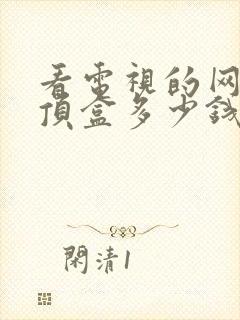 看電視的网
頂盒多少銭
閑清1